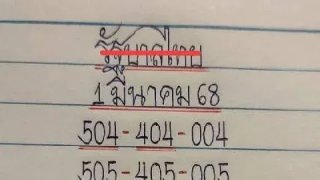 รัฐบาลไทย
1 มีนาคม 68
504-404-004
505-405-005